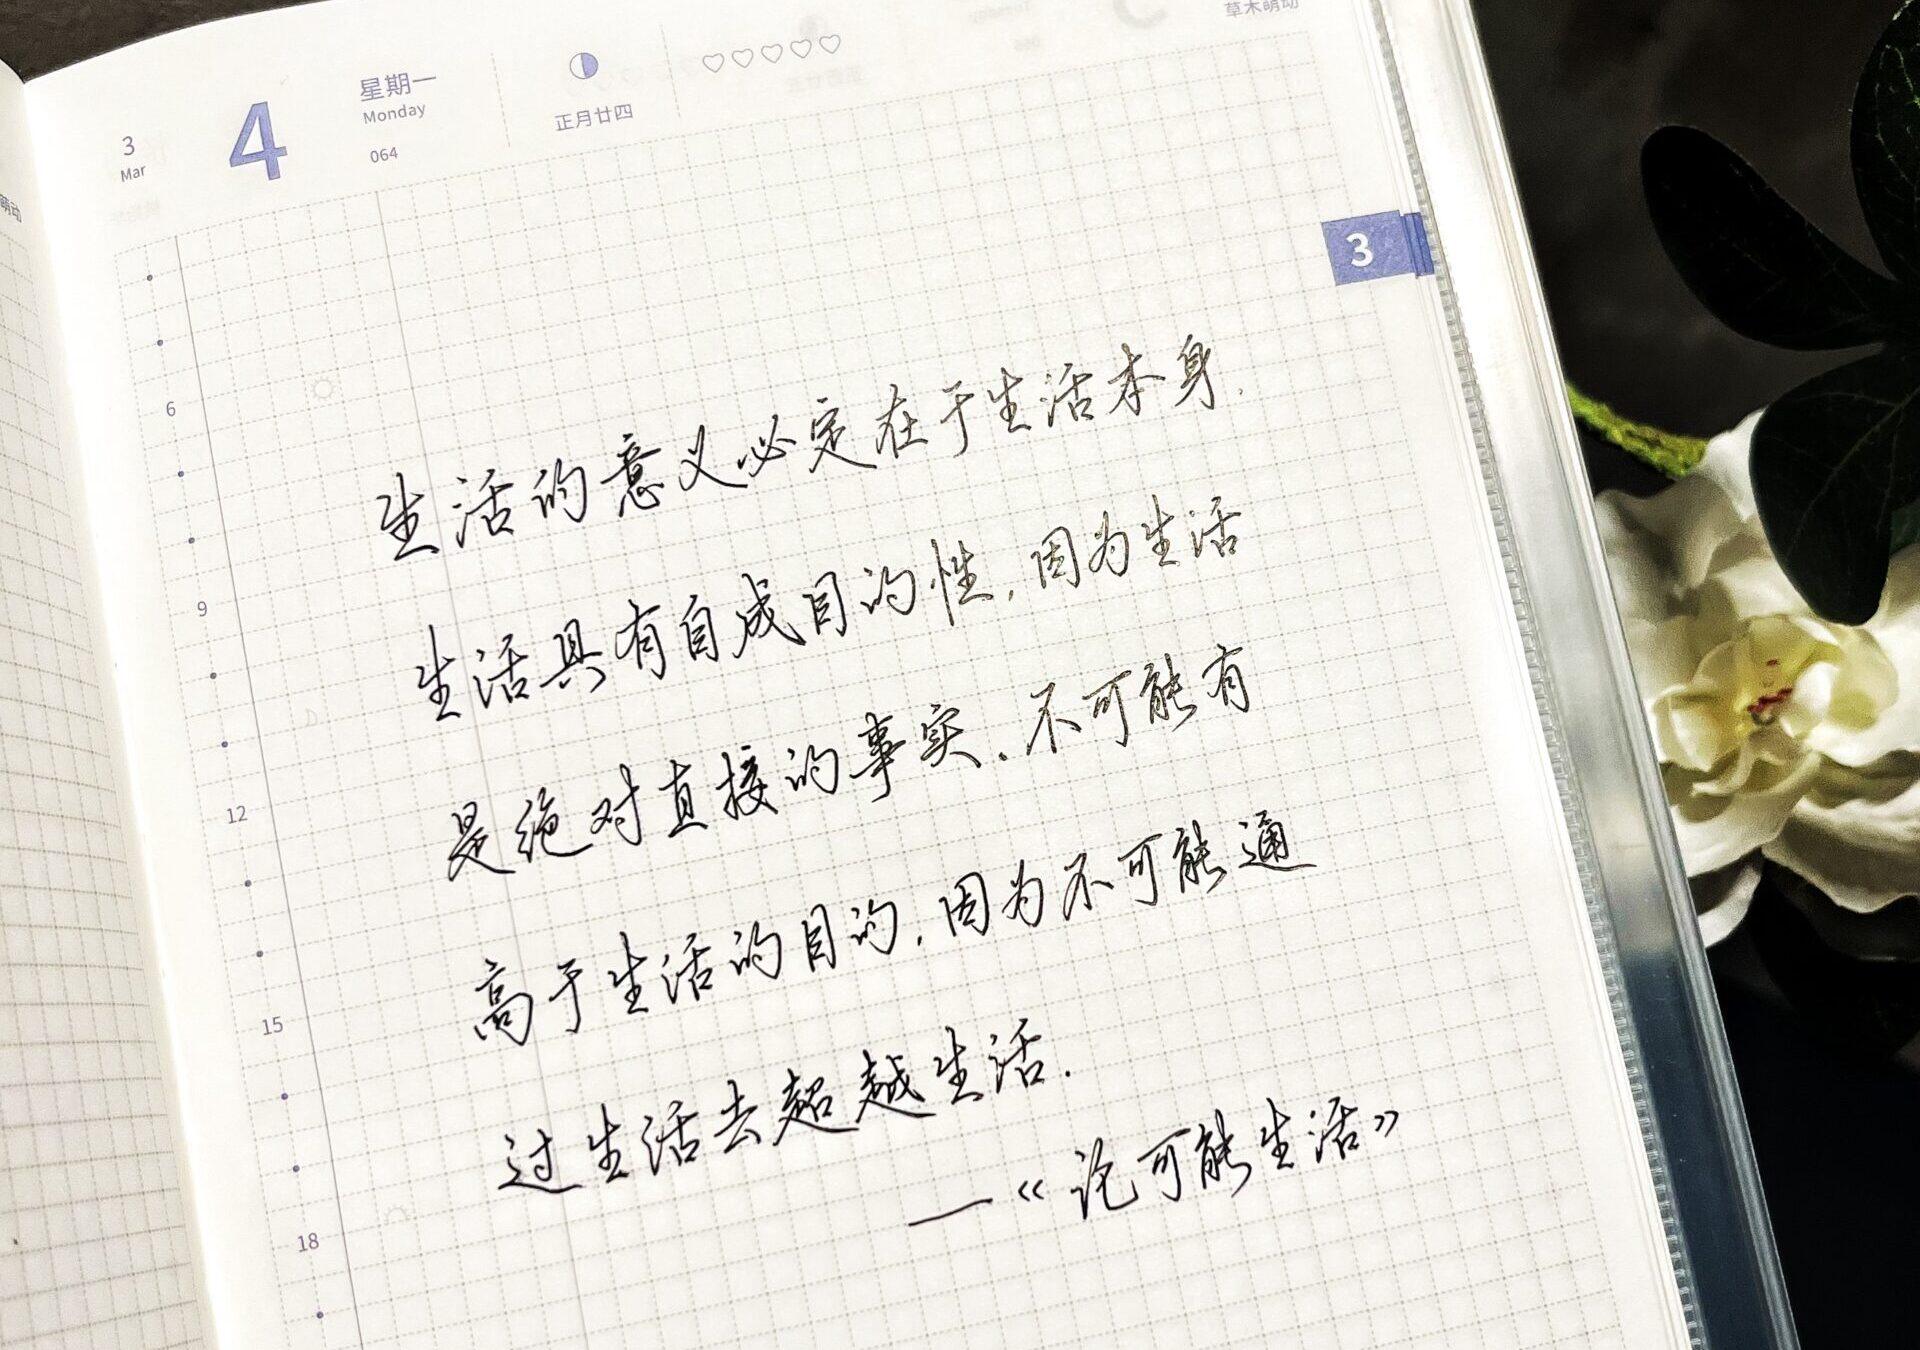 草木萌动
3
Mar
4
星期一
Monday
064
正月廿四
萌动
3
6
9
12
15
18
生活的意义必定在于生活本身.
生活具有自成目的性,因为生活
是绝对直接的事实.不可能有
高于生活的目的,因为不可能通
过生活去超越生活.
—《论可能生活》